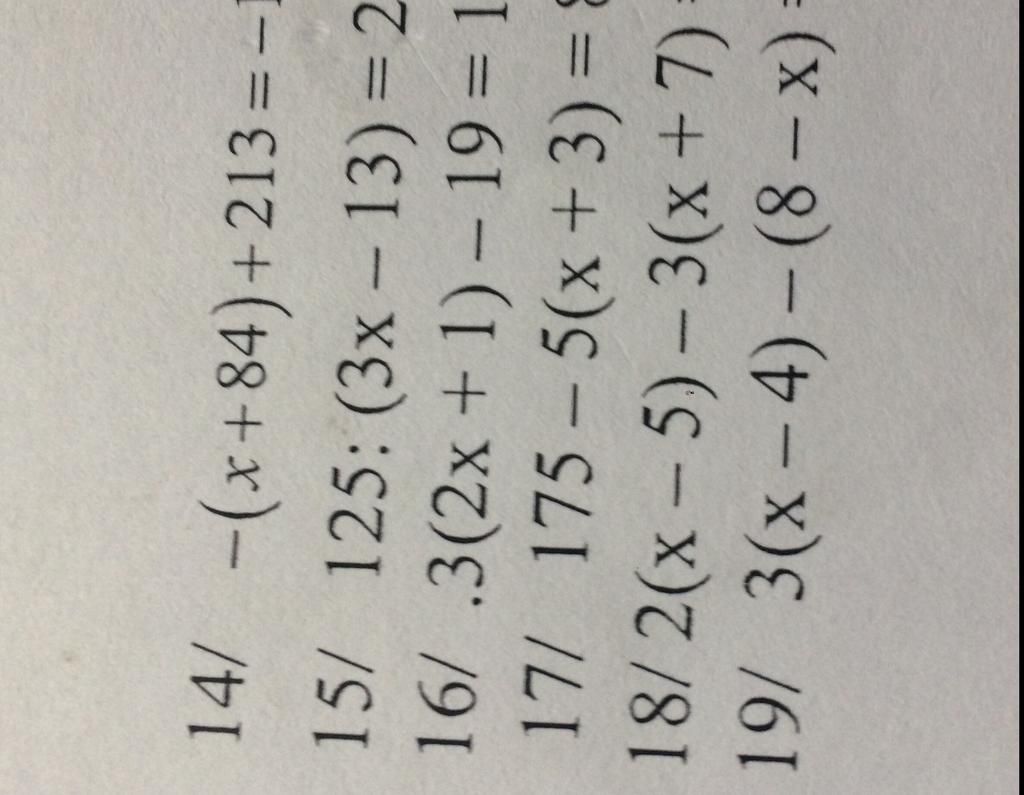 14/ –(x+84)+213=–1
15/ 125: (3x – 13) = 2
16/ .3(2x + 1) – 19 = 1
17/ 175 – 5(x + 3) = 8
18/ 2(x – 5) – 3(x + 7) =
19/ 3(x – 4) – (8 – x) =